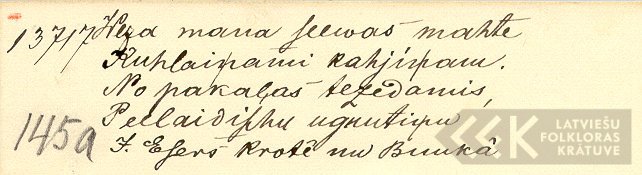 13717 Neza mana seewas mahte
Kuhlainami kahjinam.
No pakaļas tezedamis,
Peelaidischu ugnutinu
J. Esers krotē un Bunkā
145a
LATVIEŠU
FOLKLORAS
KRĀTUVE